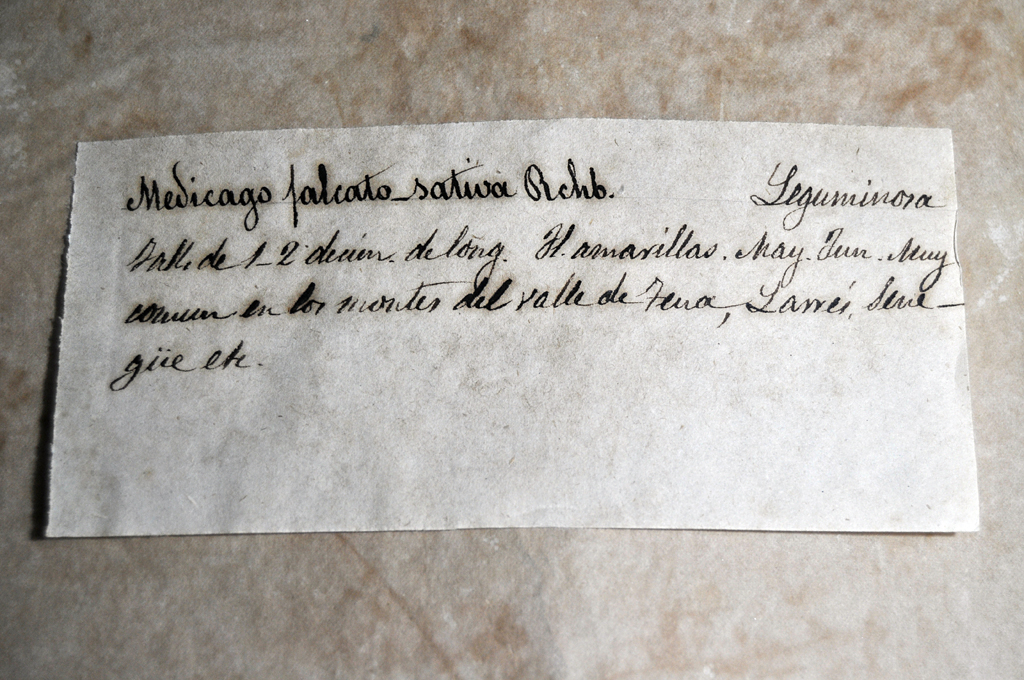 Medicago falcato-sativa Rchb. Leguminosa
Tall. de 1-2 decím. de long. Fl. amarillas. May. Jun. Muy
comun en los montes del valle de Tena, Larrés, Sene-
güe etc.